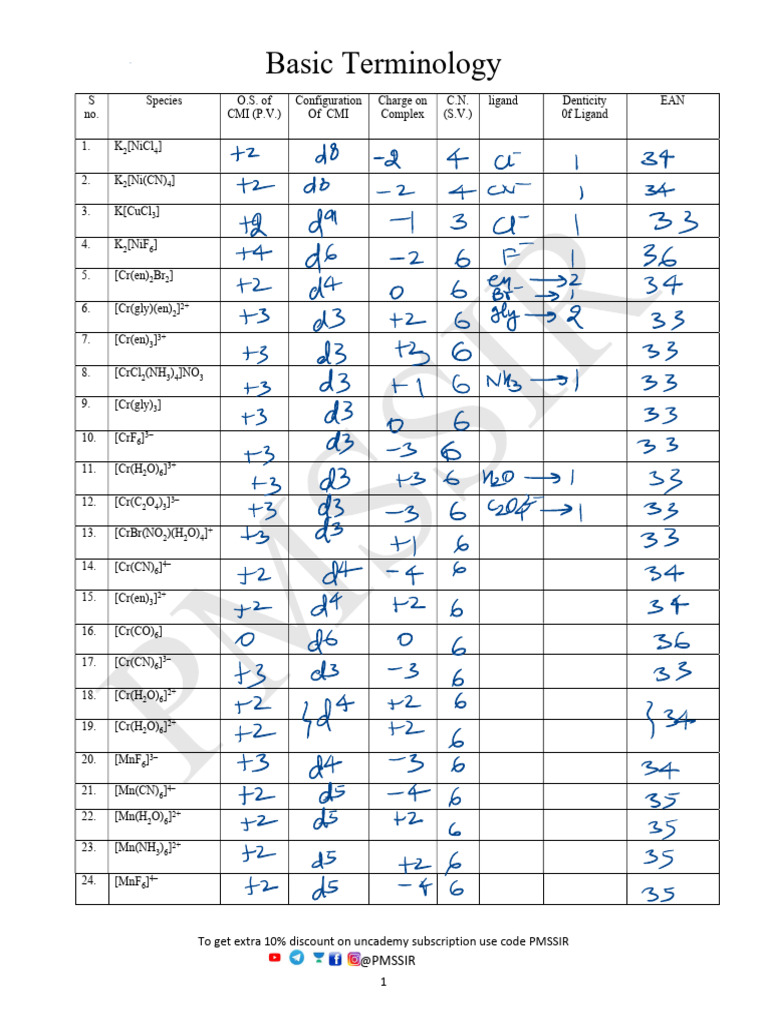 Basic Terminology
S no. Species O.S. of CMI (P.V.) Configuration Of CMI Charge on Complex C.N. (S.V.) ligand Denticity 0f Ligand EAN
1. K₂[NiCl₄] +2 d8 -2 4 Cl⁻ 1 34
2. K₂[Ni(CN)₄] +2 d8 -2 4 CN⁻ 1 34
3. K[CuCl₃] +2 d9 -1 3 Cl⁻ 1 33
4. K₂[NiF₆] +4 d6 -2 6 F⁻ 1 36
5. [Cr(en)₂Br₂] +2 d4 0 6 en → 2 Br⁻ → 1 34
6. [Cr(gly)(en)₂]²⁺ +3 d3 +2 6 gly → 2 33
7. [Cr(en)₃]³⁺ +3 d3 +3 6 33
8. [CrCl₂(NH₃)₄]NO₃ +3 d3 +1 6 NH₃ → 1 33
9. [Cr(gly)₃] +3 d3 0 6 33
10. [CrF₆]³⁻ +3 d3 -3 6 33
11. [Cr(H₂O)₆]³⁺ +3 d3 +3 6 H₂O → 1 33
12. [Cr(C₂O₄)₃]³⁻ +3 d3 -3 6 → 1 33
13. [CrBr(NO₂)(H₂O)₄]⁺ +3 d3 +1 6 33
14. [Cr(CN)₆]⁴⁻ +2 d4 -4 6 34
15. [Cr(en)₃]²⁺ +2 d4 +2 6 34
16. [Cr(CO)₆] 0 d6 0 6 36
17. [Cr(CN)₆]³⁻ +3 d3 -3 6 33
18. [Cr(H₂O)₆]²⁺ +2 } d4 +2 6 } 34
19. [Cr(H₂O)₆]²⁺ +2 +2 6
20. [MnF₆]³⁻ +3 d4 -3 6 34
21. [Mn(CN)₆]⁴⁻ +2 d5 -4 6 35
22. [Mn(H₂O)₆]²⁺ +2 d5 +2 6 35
23. [Mn(NH₃)₆]²⁺ +2 d5 +2 6 35
24. [MnF₆]⁴⁻ +2 d5 -4 6 35
PMSSIR
To get extra 10% discount on uncademy subscription use code PMSSIR
@PMSSIR
1